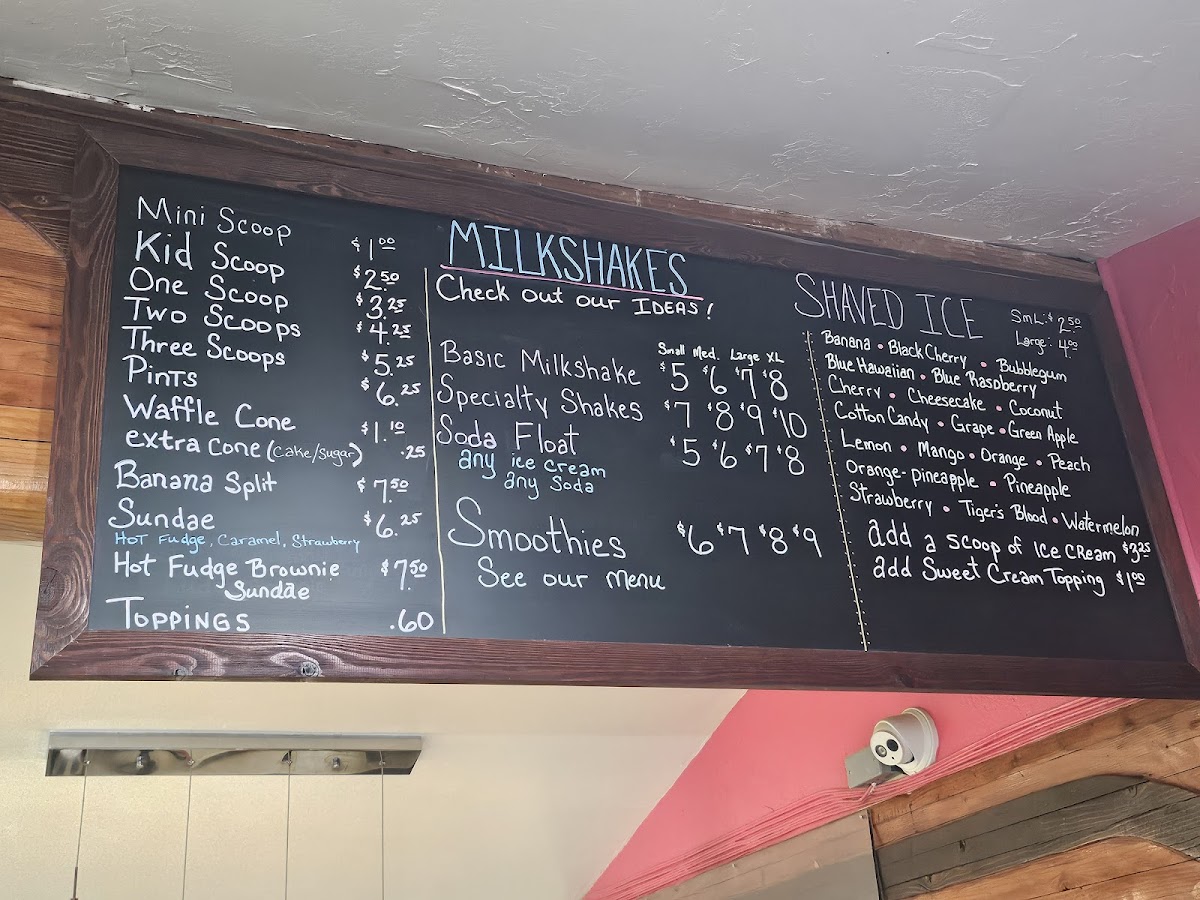 Mini Scoop $1.00
Kid Scoop $2.50
One Scoop $3.25
Two Scoops $4.25
Three Scoops $5.25
Pints $6.25
Waffle Cone $1.10
extra Cone (Cake/Sugar) .25
Banana Split $7.50
Sundae $6.25
Hot Fudge, Caramel, Strawberry
Hot Fudge Brownie $7.50
Sundae
Toppings .60
MILKSHAKES
Check out our IDEAS!
Small Med. Large XL
Basic Milkshake $5 $6 $7 $8
Specialty Shakes $7 $8 $9 $10
Soda Float $5 $6 $7 $8
any ice cream
any Soda
Smoothies $6 $7 $8 $9
See our Menu
SHAVED ICE
SmL: $2.50
Large: 4.00
Banana • Black Cherry • Bubblegum
Blue Hawaiian • Blue Raspberry
Cherry • Cheesecake • Coconut
Cotton Candy • Grape • Green Apple
Lemon • Mango • Orange • Peach
Orange-pineapple • Pineapple
Strawberry • Tiger's Blood • Watermelon
add a scoop of Ice Cream $3.25
add Sweet Cream Topping $1.00